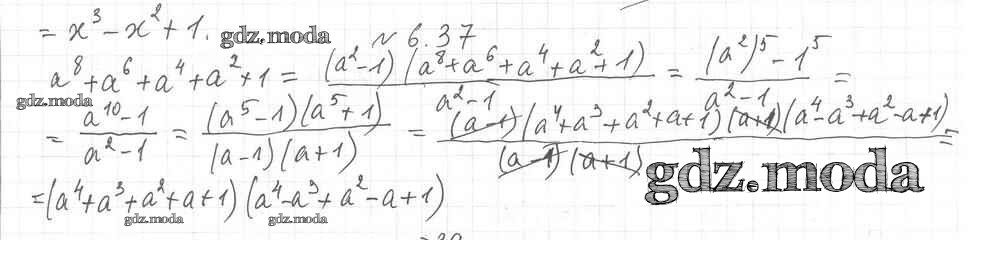 = x³ - x² + 1. gdz.moda № 6.37
a⁸ + a⁶ + a⁴ + a² + 1 = (a² - 1)(a⁸ + a⁶ + a⁴ + a² + 1) / a² - 1 = (a²)⁵ - 1⁵ / a² - 1 =
gdz.moda
= a¹⁰ - 1 / a² - 1 = (a⁵ - 1)(a⁵ + 1) / (a - 1)(a + 1) = (a - 1)(a⁴ + a³ + a² + a + 1)(a + 1)(a⁴ - a³ + a² - a + 1) / (a - 1)(a + 1) =
gdz.moda
= (a⁴ + a³ + a² + a + 1)(a⁴ - a³ + a² - a + 1)
gdz.moda gdz.moda